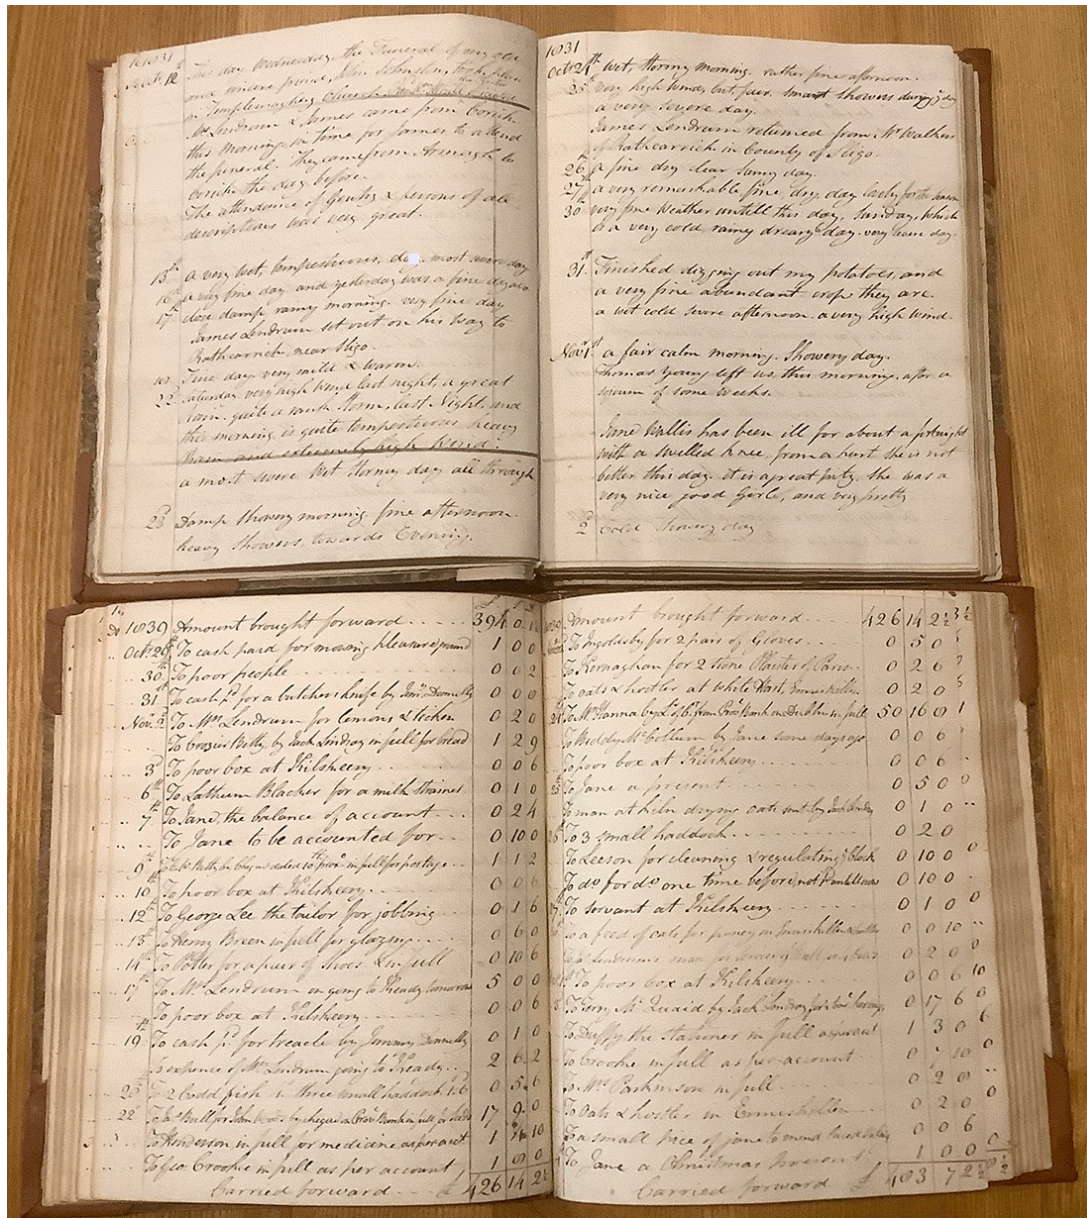 1831
Octr. 12 This day Wednesday, the Funeral of my old
and sincere friend, John Johnston, took place
in Templemaghery Church
Mrs. Lendrum & James came from Corick
this morning, in time for James to attend
the funeral. They came from Armagh to
Corick the day before.
The attendance of Gentry & persons of all
descriptions was very great.
15th a very wet, tempestuous, day. most severe day
16th a very fine day and yesterday was a fine day also
17th close damp rainy morning. very fine day
James Lendrum set out on his way to
Rathcarrick, near Sligo.
Fine day very mild & warm.
22 Saturday, very high Wind last night, a great
rain, quite a rank storm, last Night, and
this morning is quite tempestuous heavy
Rain and extremely high Wind.
a most severe Wet Stormy day all through
23d Damp showery morning. fine afternoon.
heavy Showers towards Evening.
1831
Octr. 24th Wet, stormy morning. rather fine afternoon.
25th Very high Wind, but fair. smart showers during ye day
a very severe day.
James Lendrum returned from Mr. Walkers
of Rathcarrick in County of Sligo.
26th a fine dry clear sunny day.
27th a very remarkable fine dry day lovely for the season
30th very fine Weather untill this day, Sunday, which
is a very cold, rainy dreary day. very severe day.
31st Finished digging out my potatoes, and
a very fine abundant crop they are.
a wet cold severe afternoon. a very high Wind.
Novr. 1st a fair calm morning. Showery day.
Thomas Young left us this morning, after a
sojourn of some weeks.
Jane Wallis has been ill for about a fortnight
with a swelled knee, from a hurt she is not
better this day. it is a great pity. she was a
very nice good Girl, and very pretty
2d Cold showery day
1839 Amount brought forward 394 0 1
Octr. 26th To cash paid for mowing pleasure ground 1 0 0
30th To poor people 0 0 2
31st To cash pd. for a butchers knife by Jimmy Donnelly 0 0
Novr. 2d To Mrs. Lendrum for lemons & 0 2 0
To Crozier Betty by Jack Lindsay in full for bread 1 2 9
3d To poor box at Kilskeery 0 0 6
6th To Latham Blacker for a milk strainer 0 1 0
7th To Jane, the balance of account 0 2 4
To Jane to be accounted for 0 10 0
9th in full for postage 1 1 2
10th To poor box at Kilskeery 0 0 6
12th To George Lee the tailor for jobbing 0 1 6
13th To Henry Breen in full for glazing 0 6 0
14th To Potter for a pair of shoes & in full 0 10 6
17th To Mrs. Lendrum on going to Keady tomorrow 5 0 0
To poor box at Kilskeery 0 0 6
19th To cash pd. for treacle by Jimmy Donnelly 0 1 0
To expence of Mrs. Lendrum going to Keady 2 6 2
20th To 2 Codd fish & three small haddock 0 5 6
22 by cheque on Provl. Bank in full 17 9 0
To Henderson in full for medicine as per acct 1 10
To Geo Crooke in full as per account 1 0 0
Carried forward £ 426 14 2½
Amount brought forward 426 14 2½
To Ingoldsby for 2 pair of Gloves 0 5 0
To Kernaghan for 2 Stone Plaister of Paris 0 2 6
To oats & hostler at White Hart, Enniskillen 0 2 0
To Mr. Hanna by from Provl. Bank on Dublin in full 50 16 0
To Biddy McCollum by Jane some days ago 0 0 6
To poor box at Kilskeery 0 0 6
25th To Jane a present 0 5 0
To man at kiln drying oats sent by Jack Lindsay 0 1 0
To 3 small haddock 0 2 0
To Leeson for cleaning & regulating ye clock 0 10 0
To do for do one time before, not 0 10 0
27th To servant at Kilskeery 0 1 0
To a feed of oats for poney in Enniskillen 0 0 10
0 2 0
To poor box at Kilskeery 0 0 6
To Terry McQuaid by Jack Lindsay for 0 17 6
To Duffy the Stationer in full as per acct 1 3 0
To Crooke in full as per account 0 10
To Mrs. Parkinson in full 0 2 0
To Oats & hostler in Enniskillen 0 2 0
To a small piece of jane to mend 0 0 6
To Jane a Christmas present 1 0 0
Carried forward £ 483 7 2½